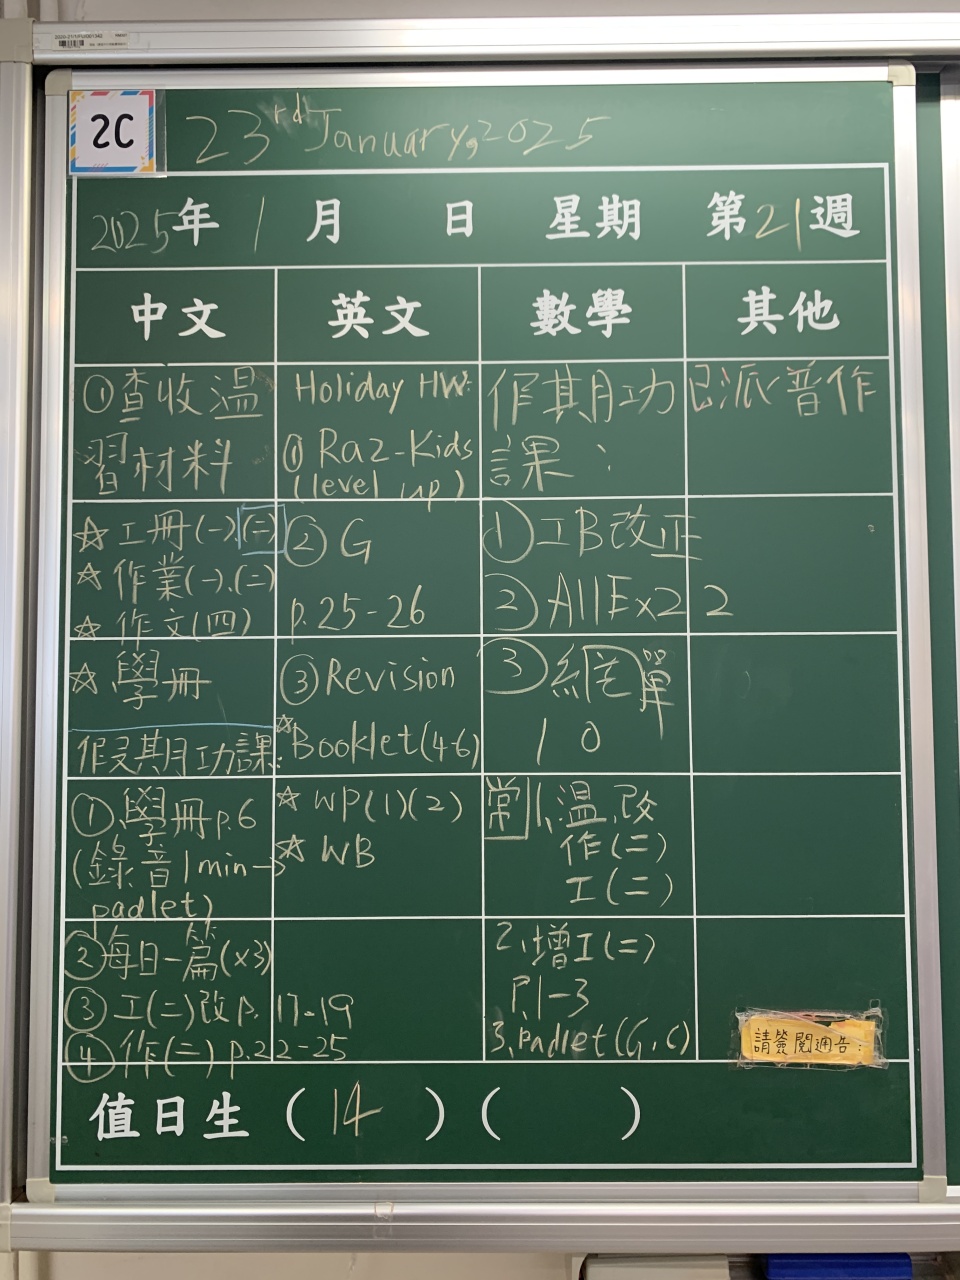 2C
23rd January, 2025
2025年 1 月 日 星期 第21週
中文 英文 數學 其他
①查收溫
習材料
☆工冊(一).(二)
☆作業(一).(二)
☆作文(四)
☆學冊
假期功課:
①學冊p.6
(錄音1min→
padlet)
②每日一篇(x3)
③工(二)改p.17-19
④作(二)p.22-25
Holiday HW:
① Raz-Kids
(level up)
② G
p.25-26
③Revision
☆Booklet(4-6)
☆ WP(1)(2)
☆ WB
假期功
課:
①IB改正
②AllEx22
③網單
10
常 1.溫.改
作(二)
工(二)
2.增工(二)
P.1-3
3.padlet(G,C)
已派普作
請簽閱通告:
值日生(14)( )